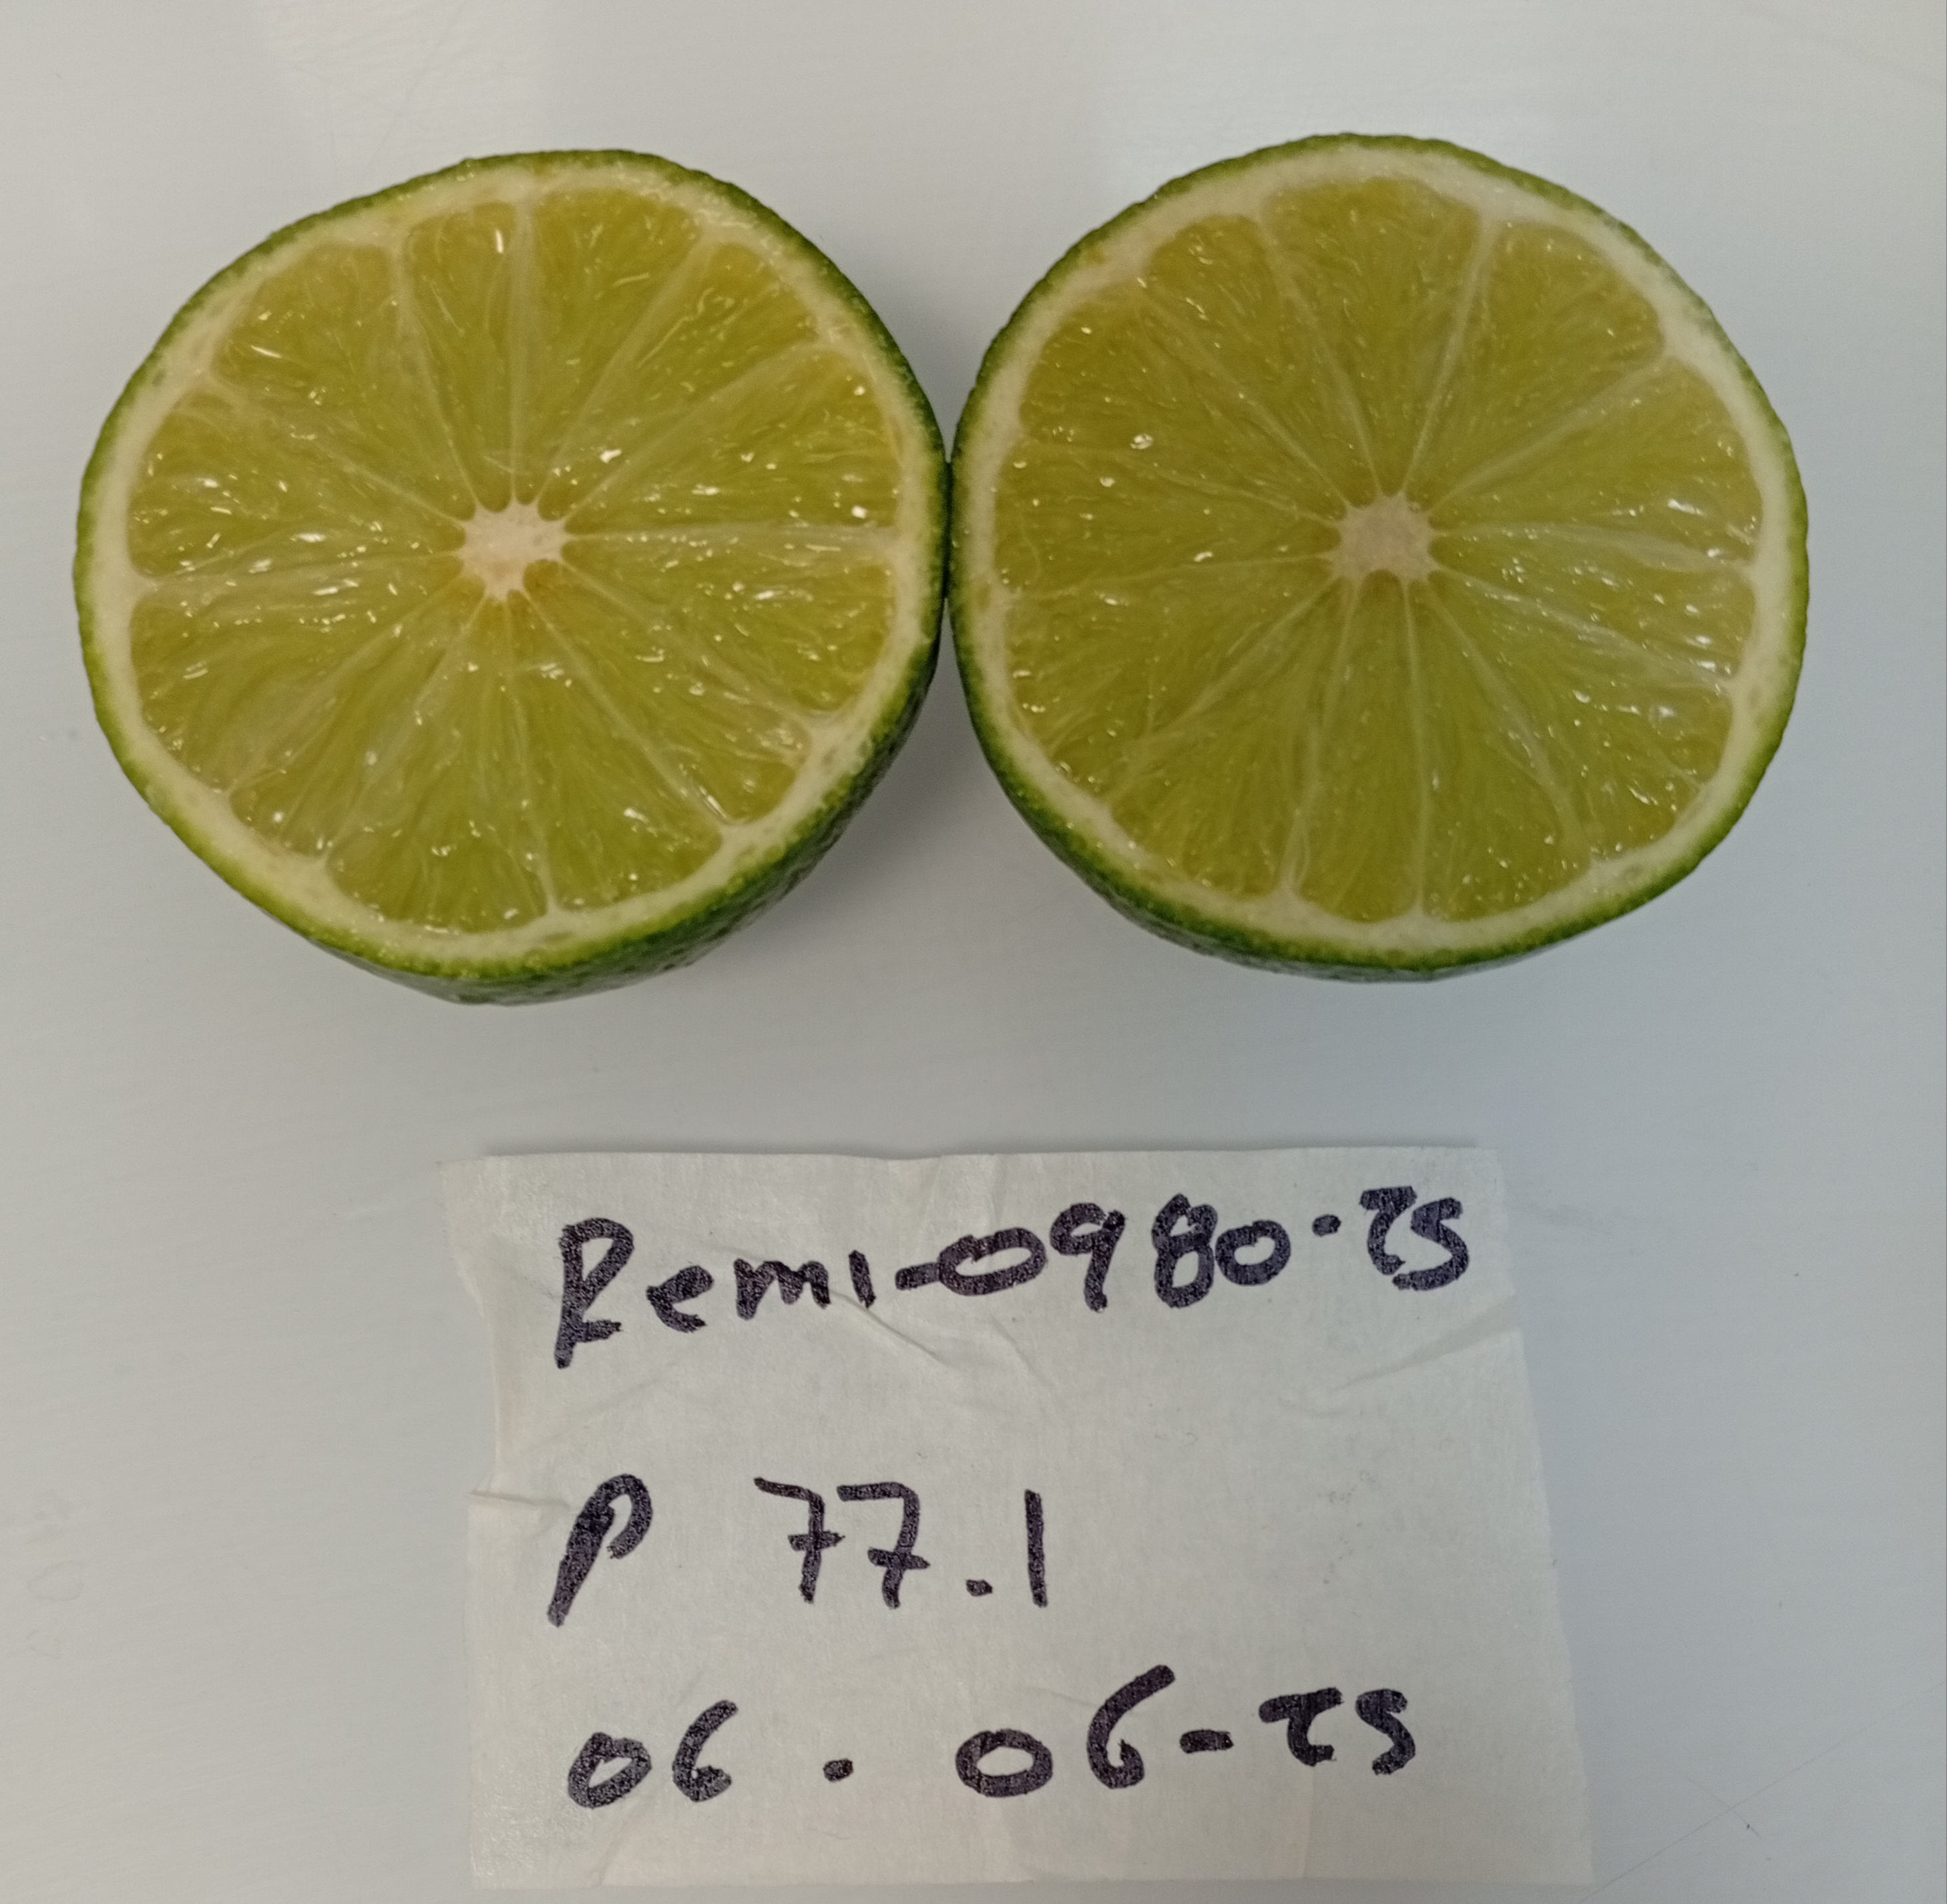 Remi-0980-25
P 77.1
06. 06-25